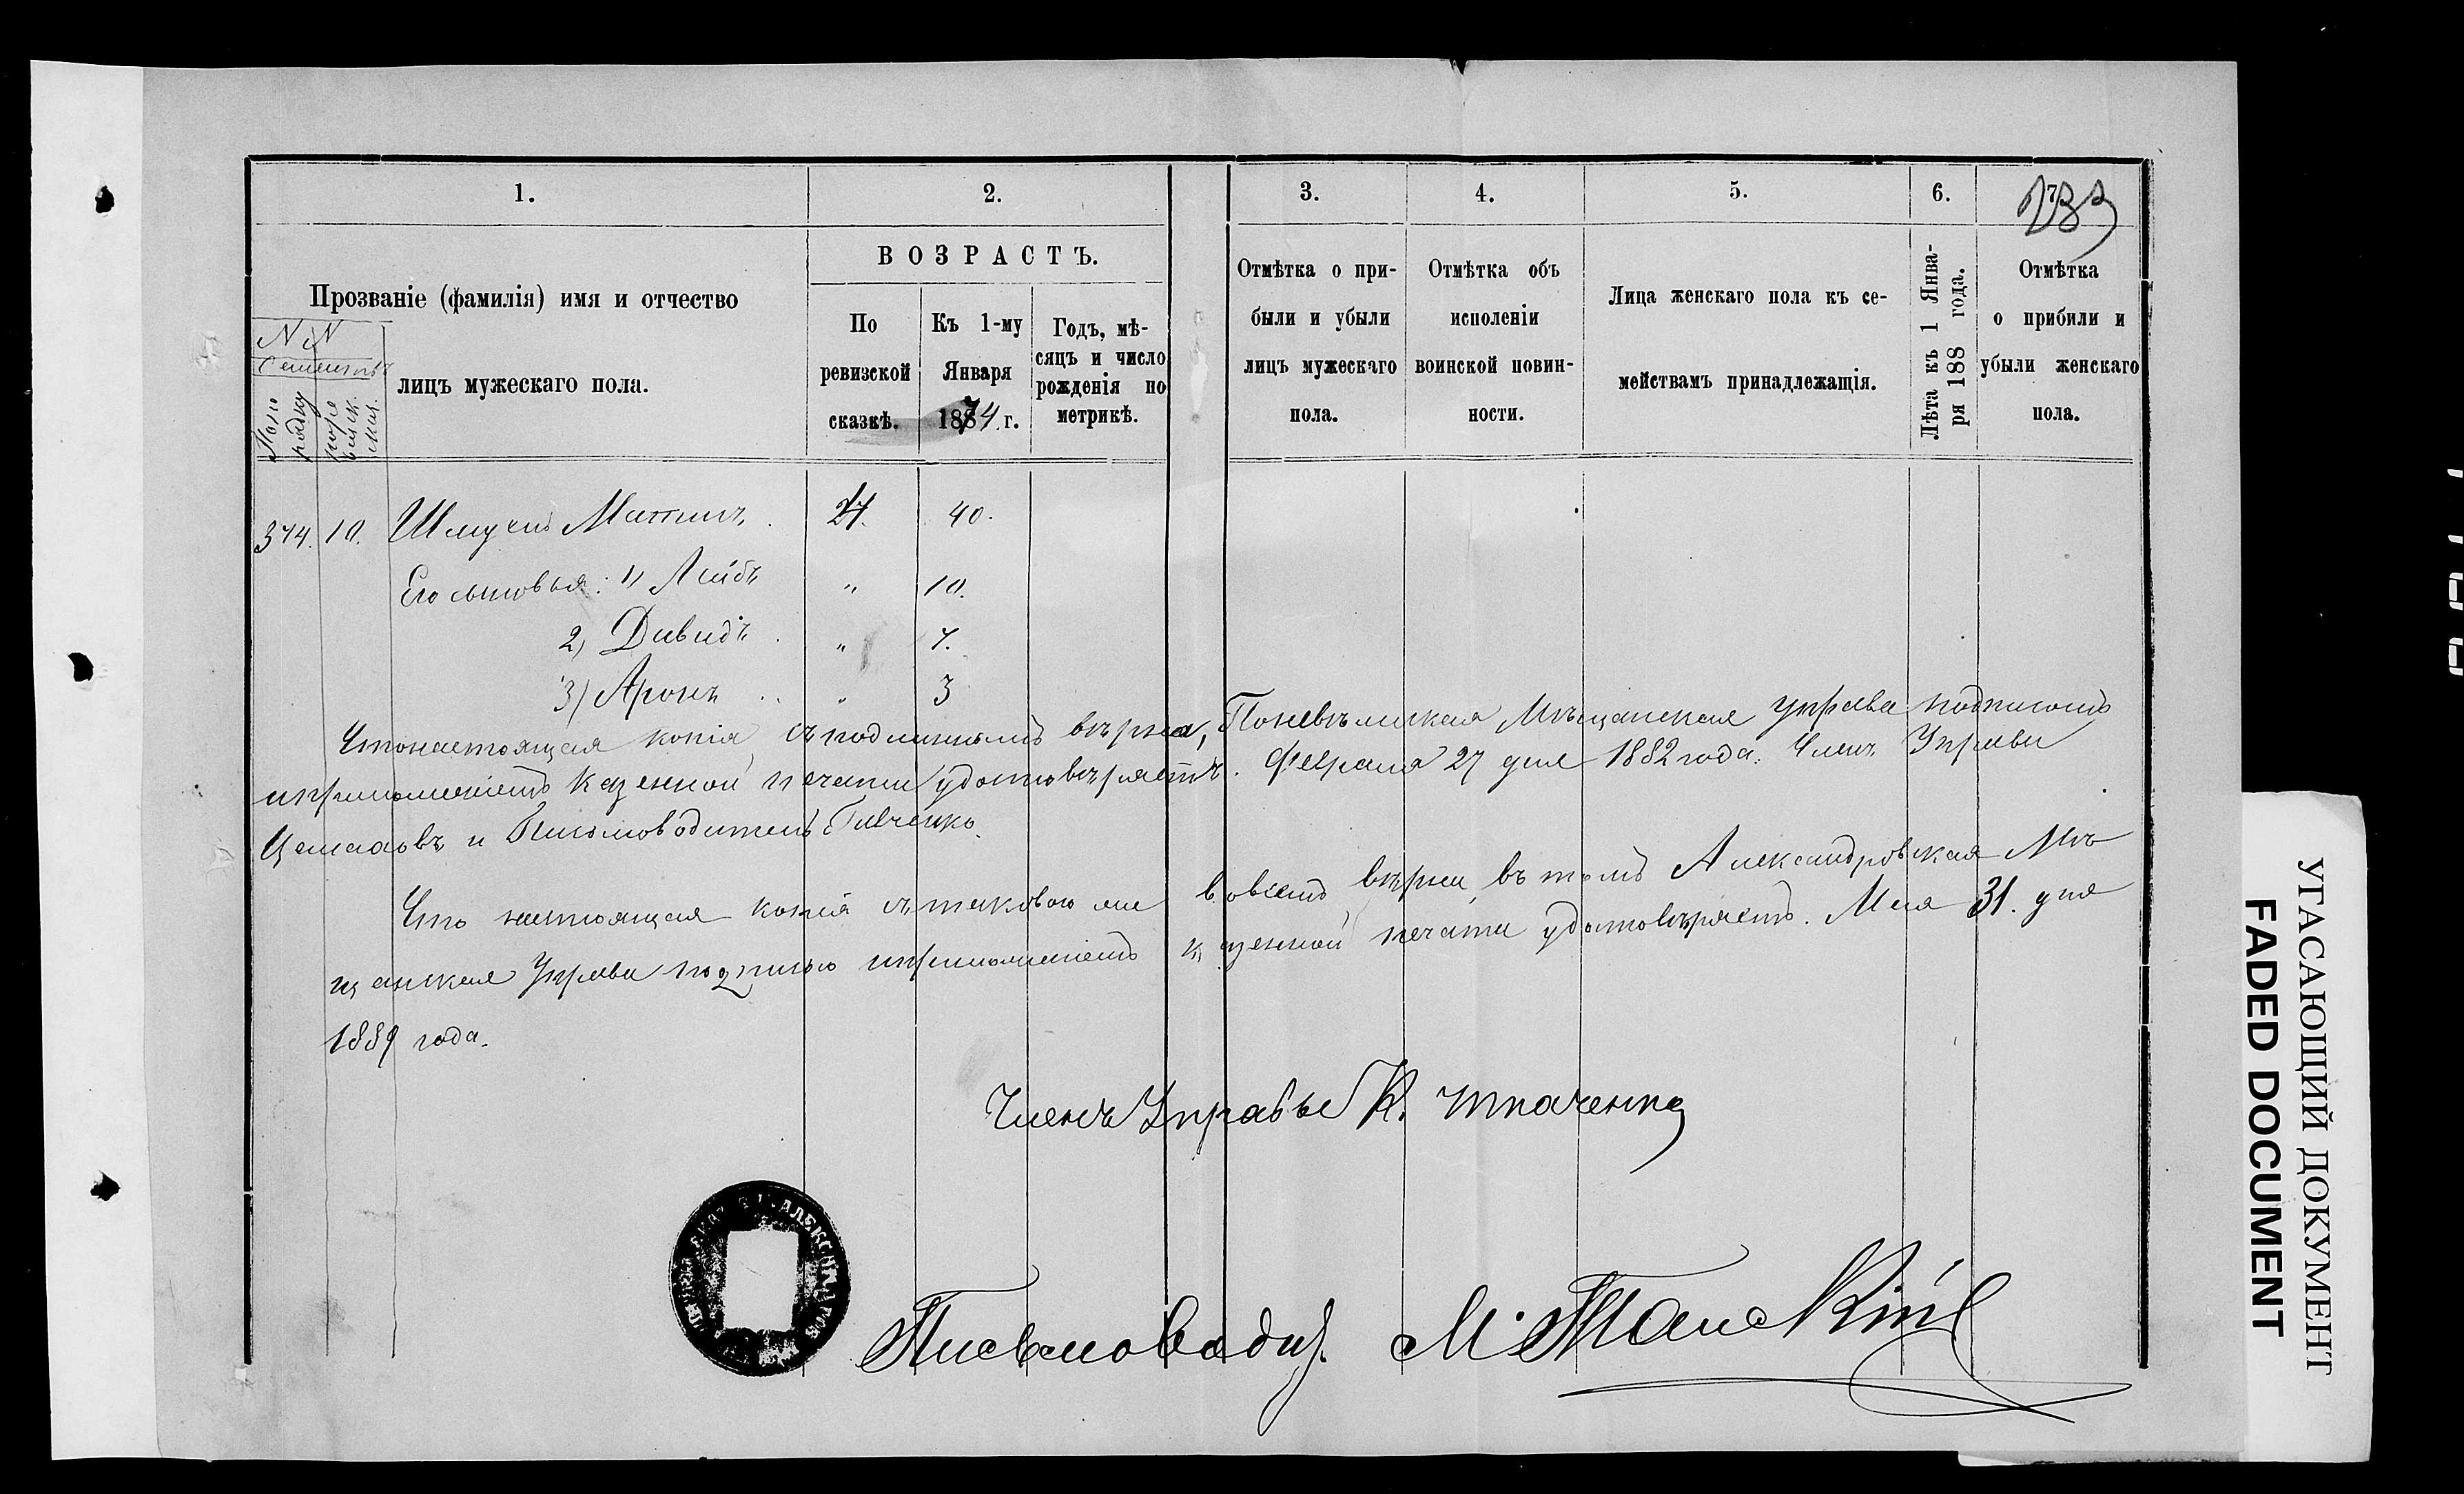 1. 2. 3. 4. 5. 6. 7
133
Прозваніе (фамилія) имя и отчество
лицъ мужескаго пола.
NN
Семействъ
По по рядку
по ре визск.
ВОЗРАСТЪ.
По ревизской сказкѣ.
Къ 1-му Января 1874 г.
Годъ, мѣсяцъ и число рожденія по метрикѣ.
Отмѣтка о прибыли и убыли лицъ мужескаго пола.
Отмѣтка объ исполеніи воинской повинности.
Лица женскаго пола къ семействамъ принадлежащія.
Лѣта къ 1 Января 188 года.
Отмѣтка о прибили и убыли женскаго пола.
374. 10. Шмуель 40.
Его сыновья: 1) Лейбъ " 10.
2) Давидъ " 7.
3) Аронъ " 3
Что настоящая копія съ подлинномъ вѣрна, Мѣщанская управа подписомъ
и приложеніемъ казенной печати удостовѣряетъ. Февраля 27 дня 1882 года. Членъ Управы
и Письмоводитель
Что настоящая копія съ таковою же во всемъ вѣрна, въ томъ Александровская Мѣ
щанская Управа подписью и приложеніемъ казенной печати удостовѣряетъ. Мая 31. дня
1889 года.
Членъ Управы К. Ткаченко
Письмовод. М.
УГАСАЮЩИЙ ДОКУМЕНТ
FADED DOCUMENT